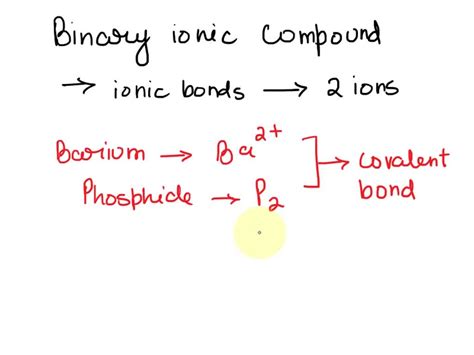 Binary ionic Compound
→ ionic bonds → 2 ions
Barium → Ba²⁺
Phosphide → P₂
→ Covalent
bond